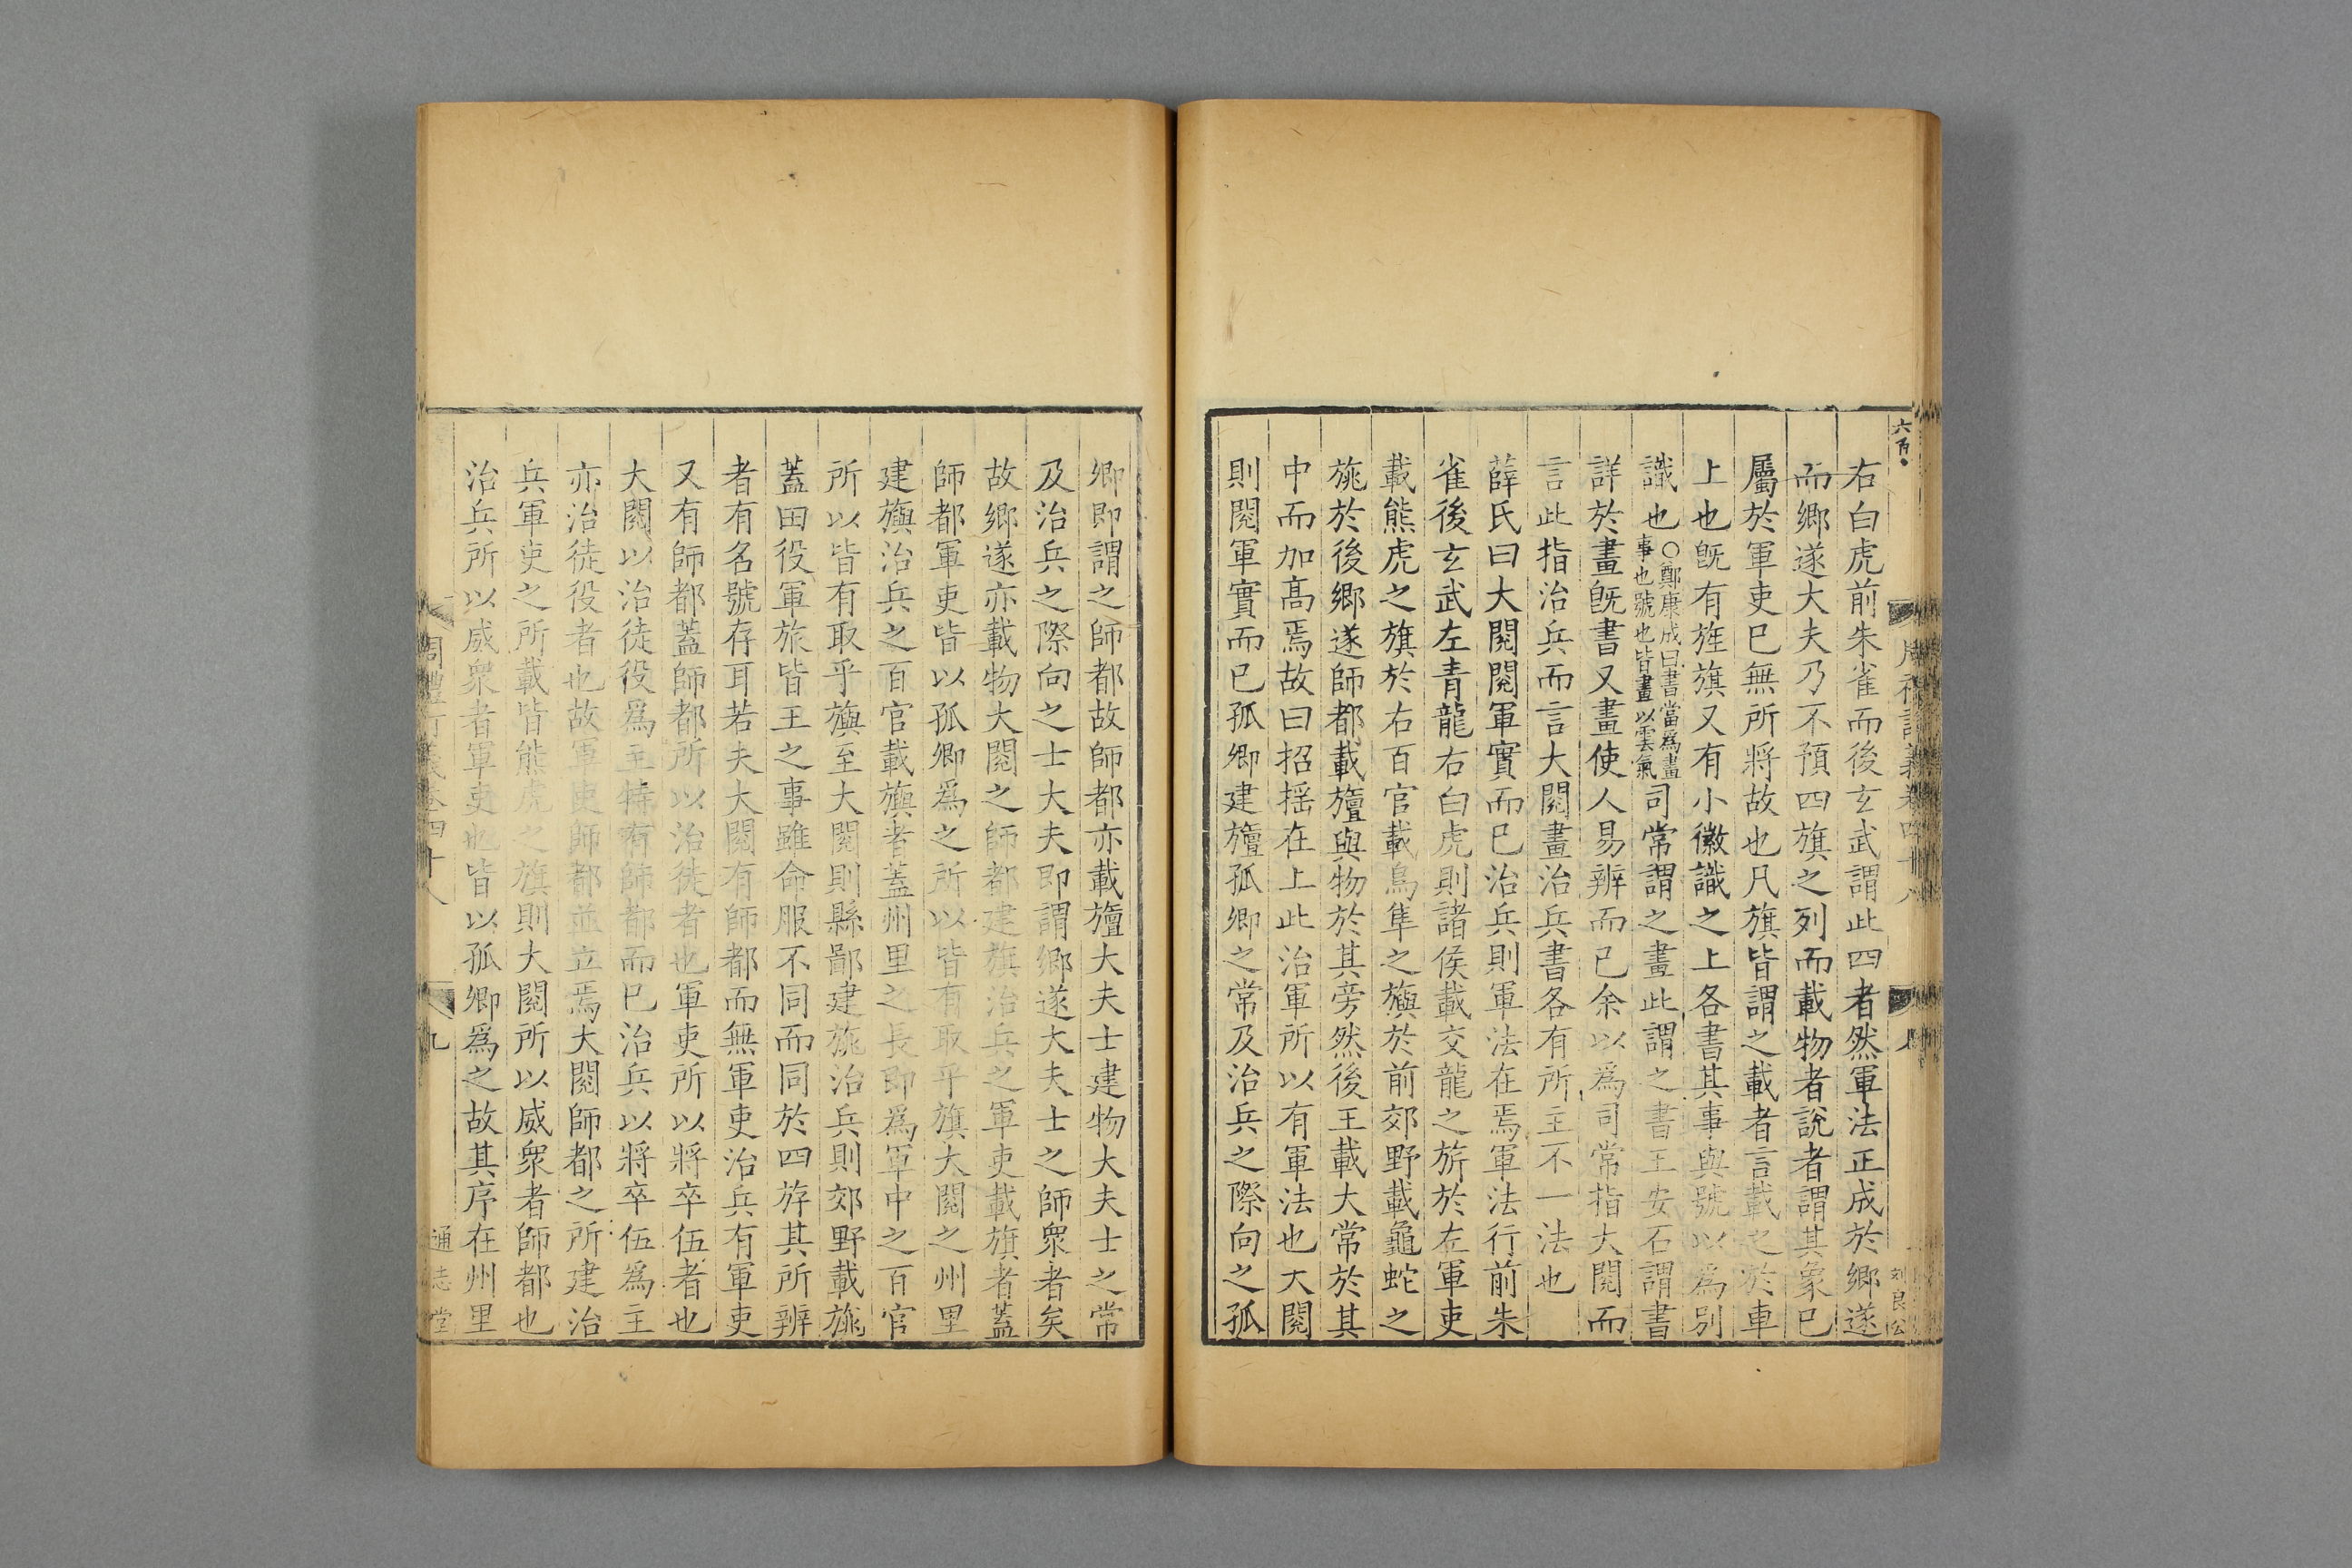 右白虎前朱雀而後玄武謂此四者然軍法正成於鄉遂
而鄉遂大夫乃不預四旗之列而載物者說者謂其象已
屬於軍吏已無所將故也凡旗皆謂之載者言載之於車
上也旣有旌旗又有小徽識之上各書其事與號以為別
識也○鄭康成曰書當爲畫事也號也皆畫以雲氣司常謂之畫此謂之書王安石謂書
詳於畫旣書又畫使人易辨而已余以為司常指大閱而
言此指治兵而言大閱畫治兵書各有所主不一法也
薛氏曰大閱閱軍實而已治兵則軍法在焉軍法行前朱
雀後玄武左青龍右白虎則諸侯載交龍之旂於左軍吏
載熊虎之旗於右百官載鳥隼之旟於前郊野載龜蛇之
旐於後鄉遂師都載旜與物於其旁然後王載大常於其
中而加高焉故曰招揺在上此治軍所以有軍法也大閱
則閱軍實而已孤卿建旜孤卿之常及治兵之際向之孤
六百
周禮訂義卷四十八
八
刘良公
卿即謂之師都故師都亦載旜大夫士建物大夫士之常
及治兵之際向之士大夫即謂鄉遂大夫士之師衆者矣
故鄉遂亦載物大閱之師都建旗治兵之軍吏載旗者蓋
師都軍吏皆以孤卿爲之所以皆有取乎旗大閱之州里
建旟治兵之百官載旟者蓋州里之長即爲軍中之百官
所以皆有取乎旟至大閱則縣鄙建旐治兵則郊野載旐
蓋田役軍旅皆王之事雖命服不同而同於四斿其所辨
者有名號存耳若夫大閱有師都而無軍吏治兵有軍吏
又有師都蓋師都所以治徒者也軍吏所以將卒伍者也
大閱以治徒役爲主特有師都而已治兵以將卒伍為主
亦治徒役者也故軍吏師都並立焉大閱師都之所建治
兵軍吏之所載皆熊虎之旗則大閱所以威衆者師都也
治兵所以威衆者軍吏也皆以孤卿爲之故其序在州里
周禮訂義卷四十八
九
通志堂